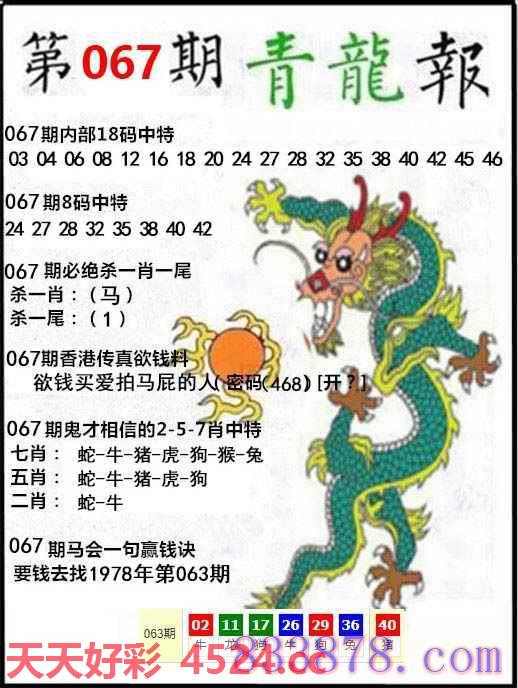 第067期 青龍報
067期内部18码中特
03 04 06 08 12 16 18 20 24 27 28 32 35 38 40 42 45 46
067期8码中特
24 27 28 32 35 38 40 42
067期必绝杀一肖一尾
杀一肖：（马）
杀一尾：（1）
067期香港传真欲钱料
欲钱买爱拍马屁的人(密码(468) [开？]
067期鬼才相信的2-5-7肖中特
七肖： 蛇-牛-猪-虎-狗-猴-兔
五肖： 蛇-牛-猪-虎-狗
二肖： 蛇-牛
067期马会一句赢钱诀
要钱去找1978年第063期
063期 02 11 17 26 29 36 40
牛 龙 狗 牛 狗 兔 猪
天天好彩 4524.cc
233878.com